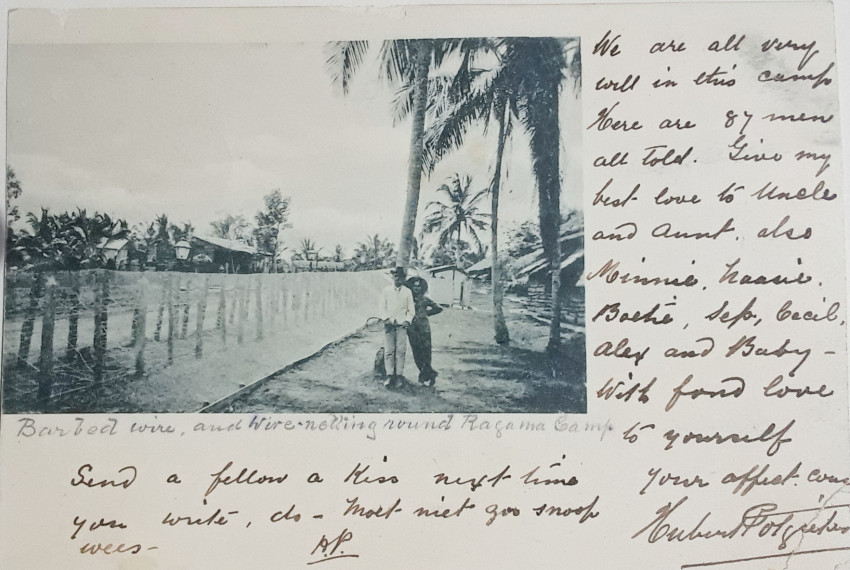 We are all very
well in this camp
Here are 87 men
all told. Give my
best love to Uncle
and Aunt, also
Minnie,
Boetie, Sep, Cecil,
Alex and Baby -
With fond love
to yourself
Your affect. cous
Hubert Potgieter
Barbed wire, and Wire-netting round Ragama Camp
Send a fellow a Kiss next time
you write, do - Moet niet zoo snoop
wees -
H.P.